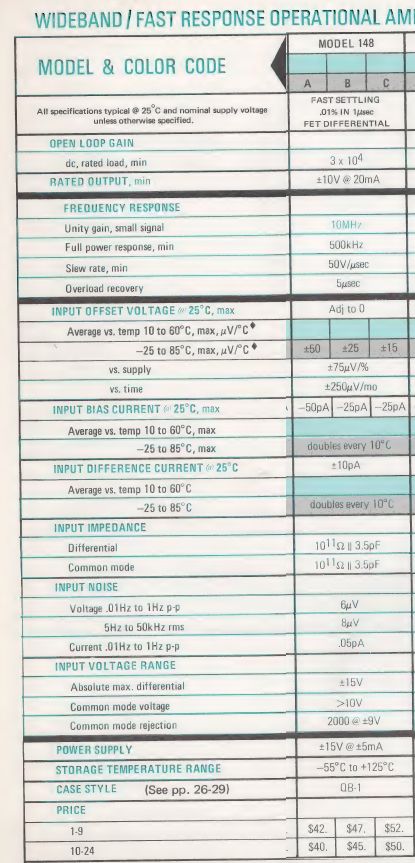 WIDEBAND / FAST RESPONSE OPERATIONAL AM
MODEL & COLOR CODE
MODEL 148
A B C
All specifications typical @ 25°C and nominal supply voltage
unless otherwise specified.
FAST SETTLING
.01% IN 1μsec
FET DIFFERENTIAL
OPEN LOOP GAIN
dc, rated load, min 3 x 10⁴
RATED OUTPUT, min ±10V @ 20mA
FREQUENCY RESPONSE
Unity gain, small signal 10MHz
Full power response, min 500kHz
Slew rate, min 50V/μsec
Overload recovery 5μsec
INPUT OFFSET VOLTAGE @ 25°C, max Adj to 0
Average vs. temp 10 to 60°C, max, μV/°C♦
−25 to 85°C, max, μV/°C♦ ±50 ±25 ±15
vs. supply ±75μV/%
vs. time ±250μV/mo
INPUT BIAS CURRENT @ 25°C, max −50pA −25pA −25pA
Average vs. temp 10 to 60°C, max
−25 to 85°C, max doubles every 10°C
INPUT DIFFERENCE CURRENT @ 25°C ±10pA
Average vs. temp 10 to 60°C
−25 to 85°C doubles every 10°C
INPUT IMPEDANCE
Differential 10¹¹Ω || 3.5pF
Common mode 10¹¹Ω || 3.5pF
INPUT NOISE
Voltage .01Hz to 1Hz p-p 6μV
5Hz to 50kHz rms 8μV
Current .01Hz to 1Hz p-p .05pA
INPUT VOLTAGE RANGE
Absolute max. differential ±15V
Common mode voltage >10V
Common mode rejection 2000 @ ±9V
POWER SUPPLY ±15V @ ±5mA
STORAGE TEMPERATURE RANGE −55°C to +125°C
CASE STYLE (See pp. 26-29) QB-1
PRICE
1-9 $42. $47. $52.
10-24 $40. $45. $50.